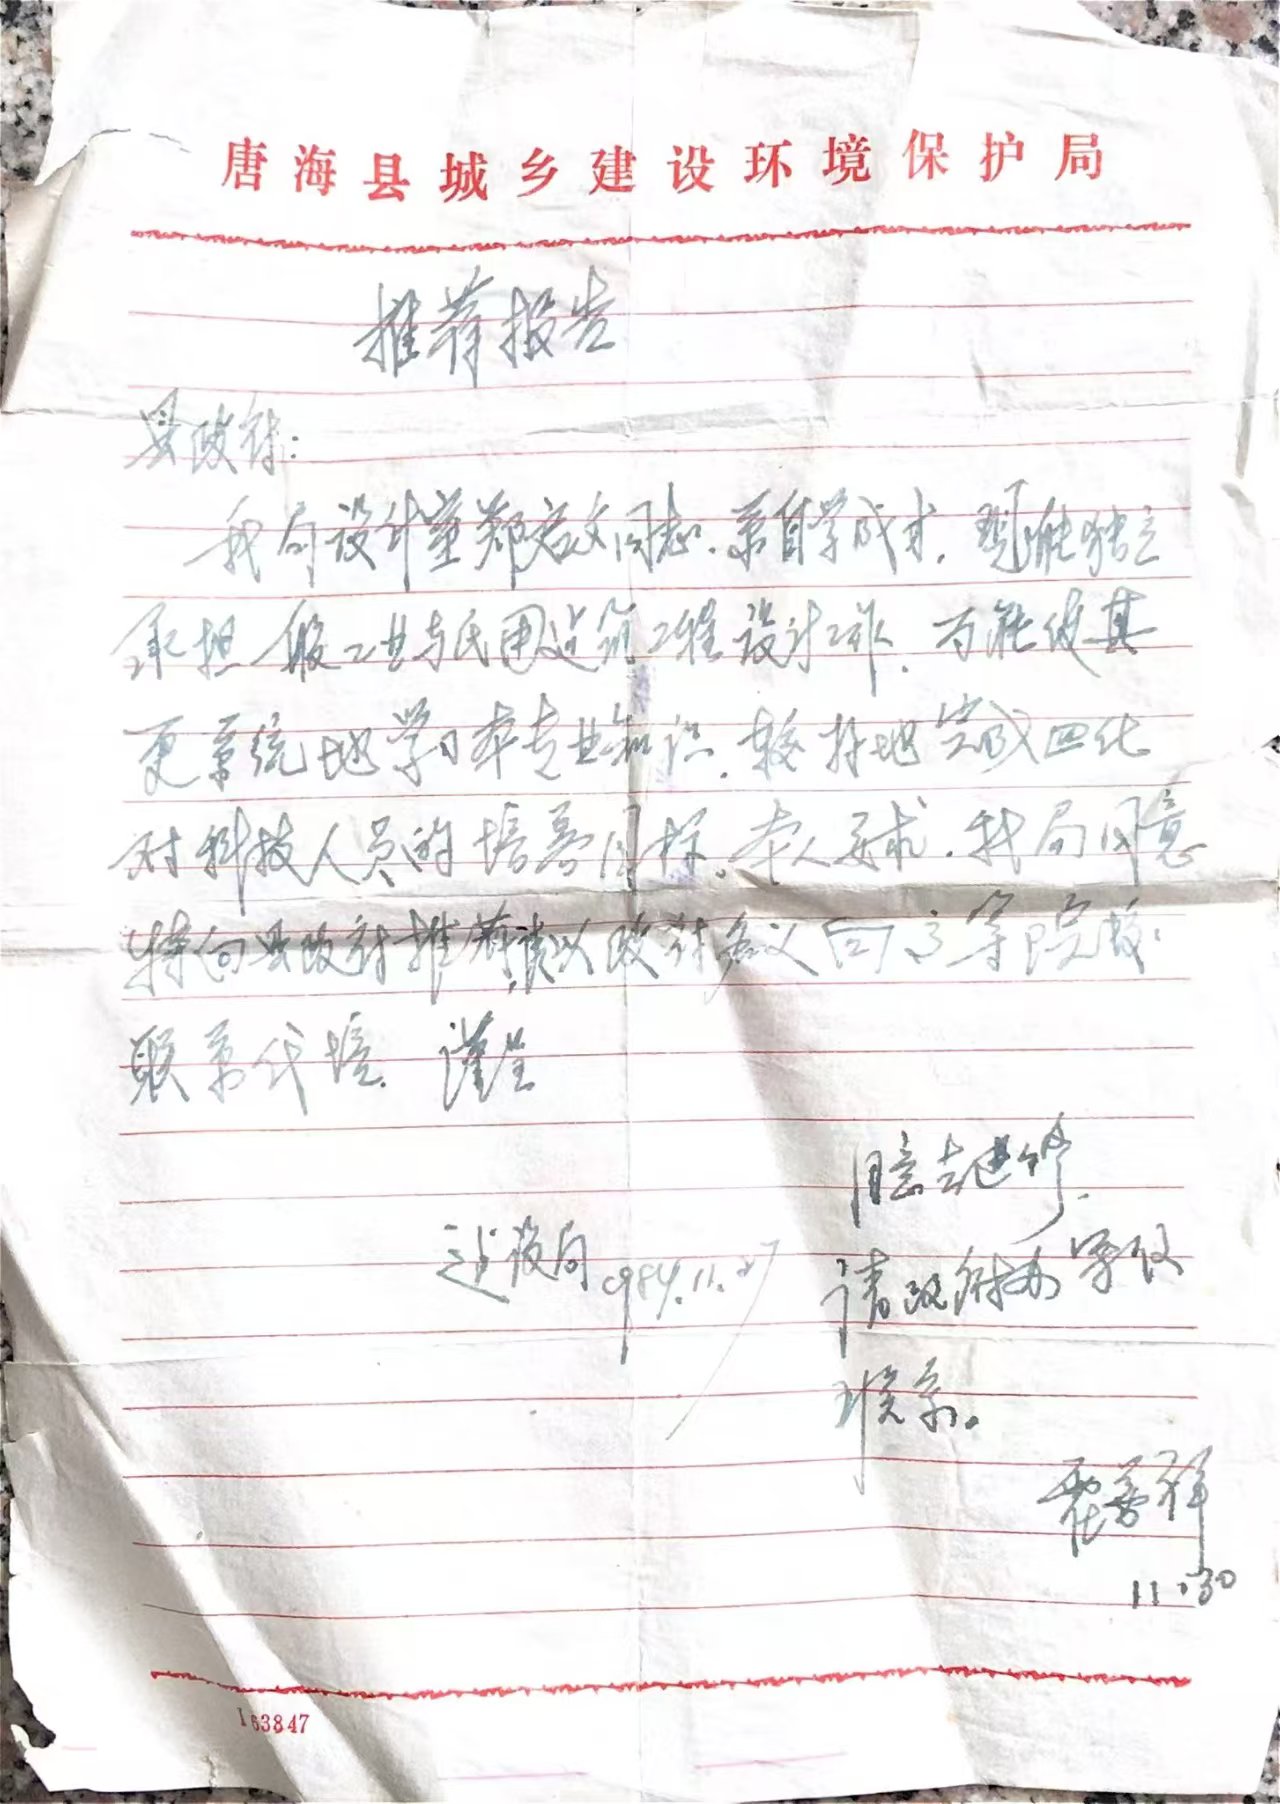 唐海县城乡建设环境保护局
推荐报告
县政府:
我局设计室郑启文同志,系自学成才,现能独立
承担一般工业与民用建筑工程设计工作,为能使其
更系统地学习本专业知识,较好地完成四化
对科技人员的培养目标。本人要求,我局同意
特向县政府推荐,请以政府名义向高等院校
联系代培。谨呈
建设局 1984.11.27
同意去进修,
请政府办
联系。
11.30
163847